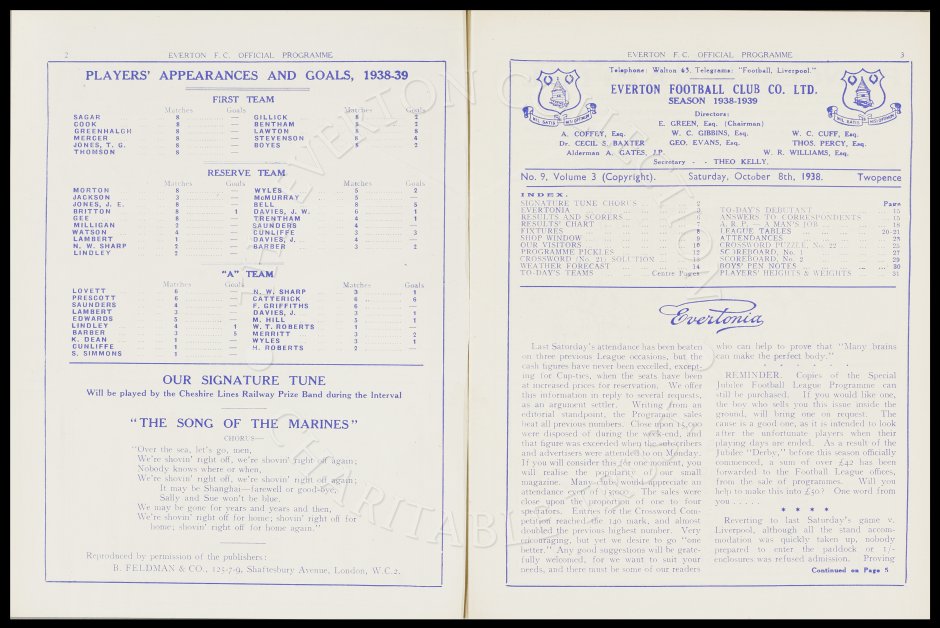 2 EVERTON F.C. OFFICIAL PROGRAMME
PLAYERS' APPEARANCES AND GOALS, 1938-39
FIRST TEAM
Matches Goals Matches Goals
SAGAR 8 — GILLICK 8 2
COOK 8 — BENTHAM 8 2
GREENHALGH 8 — LAWTON 8 8
MERCER 8 — STEVENSON 8 4
JONES, T. G. 8 — BOYES 8 2
THOMSON 8 —
RESERVE TEAM
Matches Goals Matches Goals
MORTON 8 — WYLES 5 2
JACKSON 3 — McMURRAY 5 —
JONES, J. E. 8 — BELL 8 5
BRITTON 8 1 DAVIES, J. W. 6 1
GEE 8 — TRENTHAM 4 1
MILLIGAN 2 — SAUNDERS 4 —
WATSON 4 — CUNLIFFE 3 3
LAMBERT 1 — DAVIES, J. 4 —
N. W. SHARP 2 — BARBER 3 2
LINDLEY 2 —
"A" TEAM
Matches Goals Matches Goals
LOVETT 6 — N. W. SHARP 3 1
PRESCOTT 6 — CATTERICK 6 6
SAUNDERS 4 — F. GRIFFITHS 6 —
LAMBERT 3 — DAVIES, J. 3 1
EDWARDS 5 — M. HILL 5 1
LINDLEY 4 1 W. T. ROBERTS 1 —
BARBER 3 5 MERRITT 3 2
K. DEAN 1 — WYLES 3 1
CUNLIFFE 1 — H. ROBERTS 2 —
S. SIMMONS 1 —
OUR SIGNATURE TUNE
Will be played by the Cheshire Lines Railway Prize Band during the Interval
"THE SONG OF THE MARINES"
CHORUS—
"Over the sea, let's go, men,
We're shovin' right off, we're shovin' right off again;
Nobody knows where or when,
We're shovin' right off, we're shovin' right off again;
It may be Shanghai—farewell or good-bye;
Sally and Sue won't be blue.
We may be gone for years and years and then,
We're shovin' right off for home; shovin' right off for
home; shovin' right off for home again."
Reproduced by permission of the publishers:
B. FELDMAN & CO., 125-7-9, Shaftesbury Avenue, London, W.C.2.
EVERTON F.C. OFFICIAL PROGRAMME 3
Telephone: Walton 45. Telegrams: "Football, Liverpool."
EVERTON FOOTBALL CLUB CO. LTD.
SEASON 1938-1939
Directors:
E. GREEN, Esq. (Chairman)
A. COFFEY, Esq. W. C. GIBBINS, Esq. W. C. CUFF, Esq.
Dr. CECIL S. BAXTER GEO. EVANS, Esq. THOS. PERCY, Esq.
Alderman A. GATES, J.P. W. R. WILLIAMS, Esq.
Secretary - - THEO KELLY.
NIL SATIS NISI OPTIMUM
NIL SATIS NISI OPTIMUM
No. 9, Volume 3 (Copyright). Saturday, October 8th, 1938. Twopence
INDEX.
Page
SIGNATURE TUNE CHORUS 2
EVERTONIA 3
RESULTS AND SCORERS
RESULTS' CHART
FIXTURES 8
SHOP WINDOW 9
OUR VISITORS 10
PROGRAMME PICKLES 12
CROSSWORD (No. 21) SOLUTION 13
WEATHER FORECAST 14
TO-DAY'S TEAMS Centre Pages
TO-DAY'S DEBUTANT 15
ANSWERS TO CORRESPONDENTS 15
A. R. P.—A MAN'S JOB 18
LEAGUE TABLES 20-21
ATTENDANCES 23
CROSSWORD PUZZLE, No. 22 25
SCOREBOARD, No. 1 27
SCOREBOARD, No. 2 29
BOYS' PEN NOTES 30
PLAYERS' HEIGHTS & WEIGHTS 31
Evertonia
Last Saturday's attendance has been beaten
on three previous League occasions, but the
cash figures have never been excelled, except-
ing for Cup-ties, when the seats have been
at increased prices for reservation. We offer
this information in reply to several requests,
as an argument settler. Writing from an
editorial standpoint, the Programme sales
beat all previous numbers. Close upon 15,000
were disposed of during the week-end, and
that figure was exceeded when the subscribers
and advertisers were attended to on Monday.
If you will consider this for one moment, you
will realise the popularity of our small
magazine. Many clubs would appreciate an
attendance even of 15,000. The sales were
close upon the proportion of one to four
spectators. Entries for the Crossword Com-
petition reached the 140 mark, and almost
doubled the previous highest number. Very
encouraging, but yet we desire to go "one
better." Any good suggestions will be grate-
fully welcomed, for we want to suit your
needs, and there must be some of our readers
who can help to prove that "Many brains
can make the perfect body."
REMINDER. Copies of the Special
Jubilee Football League Programme can
still be purchased. If you would like one,
the boy who sells you this issue inside the
ground, will bring one on request. The
cause is a good one, as it is intended to look
after the unfortunate players when their
playing days are ended. As a result of the
Jubilee "Derby," before this season officially
commenced, a sum of over £42 has been
forwarded to the Football League offices,
from the sale of programmes. Will you
help to make this into £50? One word from
you . . . .
* * * *
Reverting to last Saturday's game v.
Liverpool, although all the stand accom-
modation was quickly taken up, nobody
prepared to enter the paddock or 1/-
enclosures was refused admission. Proving
Continued on Page 5
EVERTON COLLECTION CHARITABLE